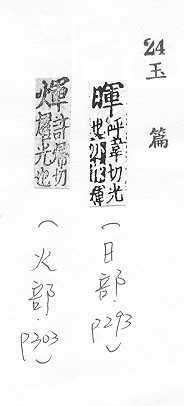 24 玉篇
暉 呼韋切光也亦作
(日部.p293)
煇 許歸切燿光也
(火部.p303)